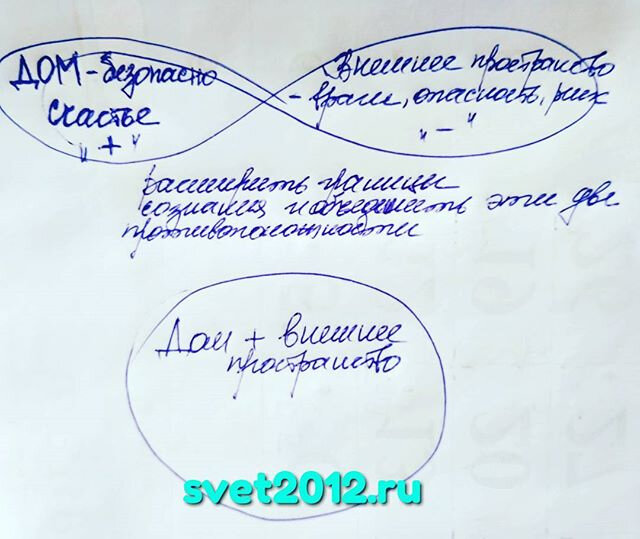 ДОМ - безопасно
счастье
"+"
Внешнее пространство
- враги, опасность, риск
"-"
Расширить границы
сознания и объединить эти две
противоположности
Дом + внешнее
пространство
svet2012.ru